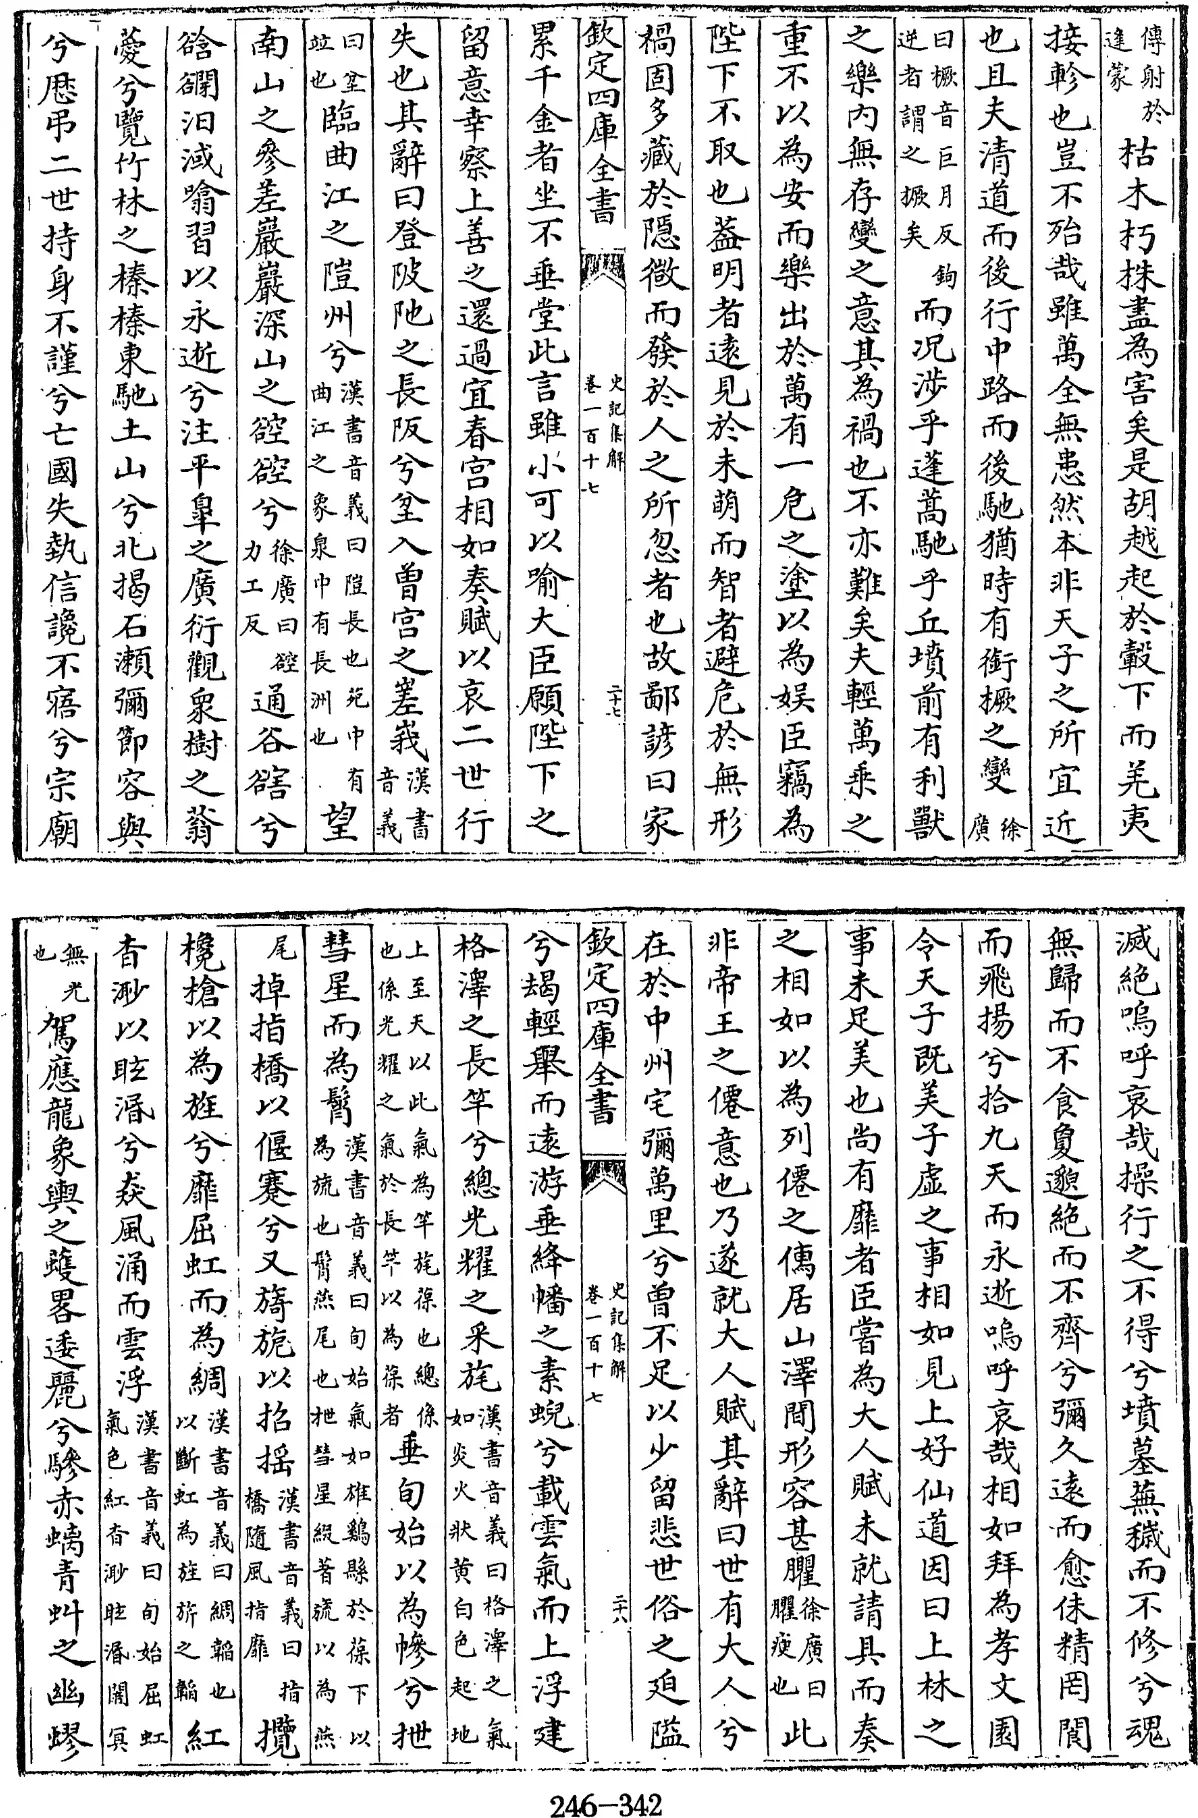 傳射於逢蒙枯木朽株盡為害矣是胡越起於轂下而羌夷
接軫也豈不殆哉雖萬全無患然本非天子之所宜近
也且夫清道而後行中路而後馳猶時有銜橛之變徐廣
曰橛音巨月反鉤逆者謂之橛矣而况涉乎蓬蒿馳乎丘墳前有利獸
之樂内無存變之意其為禍也不亦難矣夫輕萬乗之
重不以為安而樂出於萬有一危之塗以為娱臣竊為
陛下不取也葢明者逺見於未萌而智者避危於無形
禍固多藏於隱微而發於人之所忽者也故鄙諺曰家
欽定四庫全書 史記集解 卷一百十七 二十七
累千金者坐不垂堂此言雖小可以喻大臣願陛下之
留意幸察上善之還過宜春宫相如奏賦以哀二世行
失也其辭曰登陂阤之長阪兮坌入曽宫之嵳峩漢書音義
曰坌竝也臨曲江之隑州兮漢書音義曰隑長也苑中有曲江之象泉中有長洲也望
南山之參差巖巖深山之谾谾兮徐廣曰谾力工反通谷豁兮
谽𧯆汩淢噏習以永逝兮注平臯之廣衍觀衆樹之蓊
薆兮覽竹林之榛榛東馳土山兮北揭石瀬彌節容與
兮厯弔二世持身不謹兮亡國失埶信讒不寤兮宗廟
滅絶嗚呼哀哉操行之不得兮墳墓蕪穢而不修兮魂
無歸而不食夐邈絶而不齊兮彌久逺而愈佅精罔閬
而飛揚兮拾九天而永逝嗚呼哀哉相如拜為孝文園
令天子既美子虚之事相如見上好仙道因曰上林之
事未足美也尚有靡者臣嘗為大人賦未就請具而奏
之相如以為列僊之傳居山澤間形容甚臞徐廣曰臞瘦也此
非帝王之僊意也乃遂就大人賦其辭曰世有大人兮
在於中州宅彌萬里兮曽不足以少留悲世俗之廹隘
欽定四庫全書 史記集解 卷一百十七 二十八
兮朅輕舉而逺游垂絳幡之素蜺兮載雲氣而上浮建
格澤之長竿兮總光耀之采旄漢書音義曰格澤之氣如炎火狀黄白色起地
上至天以此氣為竿旄葆也總係也係光耀之氣於長竿以為葆者垂旬始以為幓兮抴
彗星而為髾漢書音義曰旬始氣如雄鷄縣於葆下以為旒也髾燕尾也抴彗星綴著旒以為燕
尾掉指橋以偃蹇兮又旖旎以招揺漢書音義曰指橋隨風指靡攬
欃槍以為旌兮靡屈虹而為綢漢書音義曰綢韜也以斷虹為旌旂之韜紅
杳渺以眩湣兮猋風涌而雲浮漢書音義曰旬始屈虹氣色紅杳渺眩湣闇冥
無光也駕應龍象輿之蠖畧逶麗兮驂赤螭青虯之蚴蟉
246-342